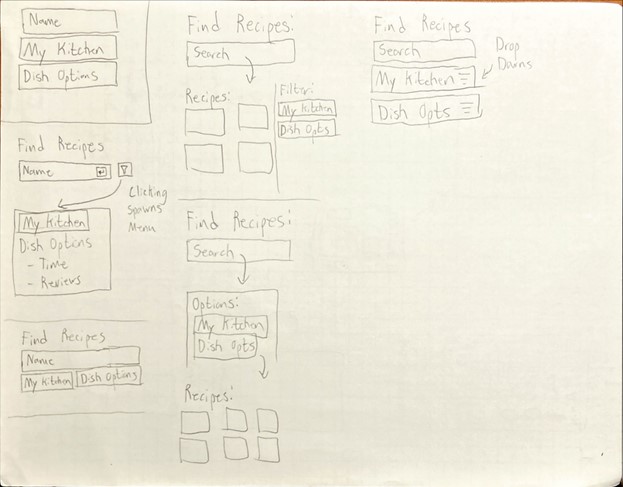 Name
My Kitchen
Dish Options
Find Recipes
Name
Clicking
Spawns
Menu
My Kitchen
Dish Options
- Time
- Reviews
Find Recipes
Name
My Kitchen
Dish Options
Find Recipes:
Search
Recipes:
Filter:
My Kitchen
Dish Opts
Find Recipes:
Search
Options:
My Kitchen
Dish Opts
Recipes:
Find Recipes
Search
My Kitchen
Dish Opts
Drop
Downs